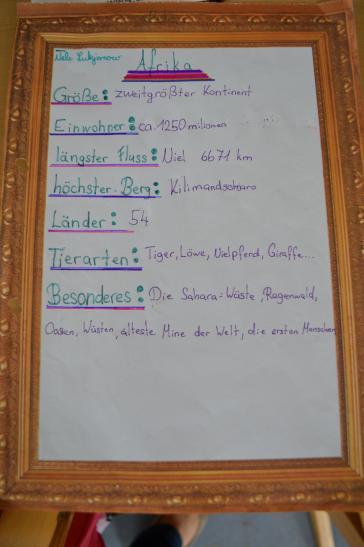 Nele Lukjanow
Afrika
Größe: zweitgrößter Kontinent
Einwohner: ca. 1250 milionen
längster Fluss: Niel 6671 km
höchster Berg: Kilimandscharo
Länder: 54
Tierarten: Tiger, Löwe, Nielpferd, Giraffe...
Besonderes: Die Sahara-Wüste, Regenwald,
Oasen, Wüsten, älteste Mine der Welt, die ersten Menschen